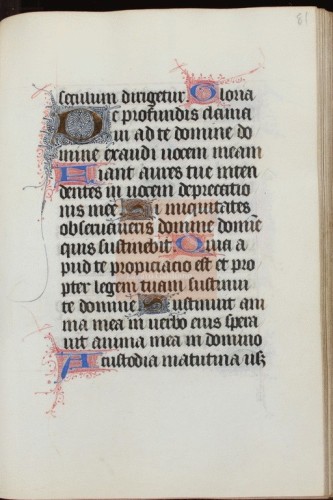 81
seculum dirigetur. Gloria
De profundis clama
ui ad te domine do
mine exaudi uocem meam
Fiant aures tue inten
dentes in uocem deprecatio
nis mee Si iniquitates
obseruaueris domine domine
quis sustinebit. Quia a
pud te propiciacio est et pro
pter legem tuam sustinui
te domine Sustinuit ani
ma mea in uerbo eius spera
uit anima mea in domino
A custodia matutina usq